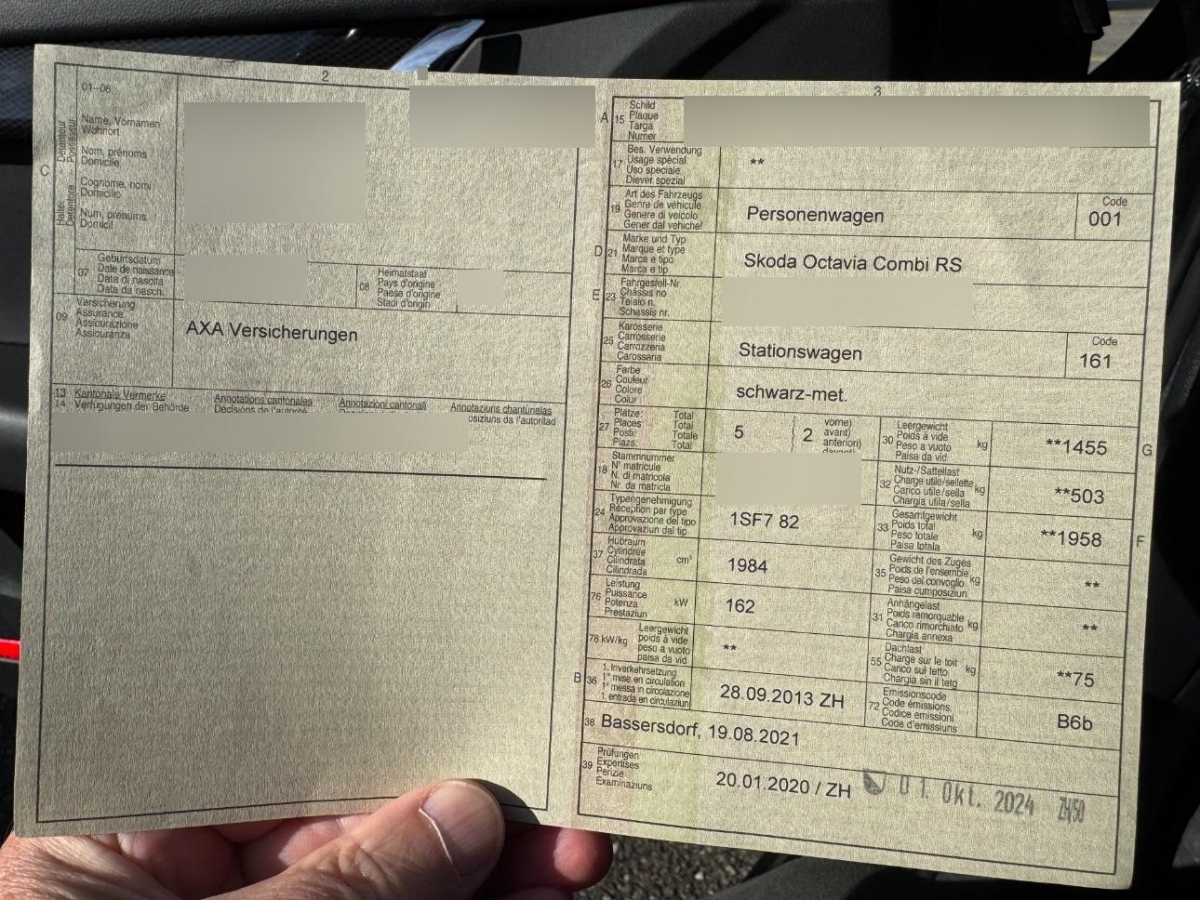 2
01–06
C
Halter Detentore
Détenteur Possessur
Name, Vornamen
Wohnort
Nom, prénoms
Domicile
Cognome, nomi
Domicilio
Num, prenums
Domicil
07
Geburtsdatum
Date de naissance
Data di nascita
Data da nasch.
08
Heimatstaat
Pays d'origine
Paese d'origine
Stadi d'origin
09
Versicherung
Assurance
Assicurazione
Assicuranza
AXA Versicherungen
13 Kantonale Vermerke Annotations cantonales Annotazioni cantonali Annotaziuns chantunalas
14 Verfügungen der Behörde Décisions de l'autorité
osiziuns da l'autoritad
3
A 15
Schild
Plaque
Targa
Numer
17
Bes. Verwendung
Usage spécial
Uso speciale
Diever spezial
**
19
Art des Fahrzeugs
Genre de véhicule
Genere di veicolo
Gener dal vehichel
Personenwagen
Code
001
D 21
Marke und Typ
Marque et type
Marca e tipo
Marca e tip
Skoda Octavia Combi RS
E 23
Fahrgestell-Nr.
Châssis no
Telaio n.
Schassis nr.
25
Karosserie
Carrosserie
Carrozzeria
Carossaria
Stationswagen
Code
161
26
Farbe
Couleur
Colore
Colur
schwarz-met.
27
Plätze: Total
Places: Total
Posti: Totale
Plazs: Total
5
2
vorne)
avant)
anteriori)
30
Leergewicht
Poids à vide
Peso a vuoto
Paisa da vid
kg
**1455
G
18
Stammnummer
N° matricule
N. di matricola
Nr. da matricla
32
Nutz-/Sattellast
Charge utile/sellette
Carico utile/sella
Chargia utila/sella
kg
**503
24
Typengenehmigung
Réception par type
Approvazione del tipo
Approvaziun dal tip
1SF7 82
33
Gesamtgewicht
Poids total
Peso totale
Paisa totala
kg
**1958
F
37
Hubraum
Cylindrée
Cilindrata
Cilindrada
cm³
1984
35
Gewicht des Zuges
Poids de l'ensemble
Peso del convoglio
Paisa cumposiziun
kg
**
76
Leistung
Puissance
Potenza
Prestaziun
kW
162
31
Anhängelast
Poids remorquable
Carico rimorchiato
Chargia annexa
kg
**
78 kW/kg
Leergewicht
poids à vide
peso a vuoto
paisa da vid
**
55
Dachlast
Charge sur le toit
Carico sul tetto
Chargia sin il tetg
kg
**75
B 36
1. Inverkehrsetzung
1re mise en circulation
1a messa in circolazione
1. entrada en circulaziun
28.09.2013 ZH
72
Emissionscode
Code émissions
Codice emissioni
Code d'emissiuns
B6b
38 Bassersdorf, 19.08.2021
39
Prüfungen
Expertises
Perizie
Examinaziuns
20.01.2020 / ZH
01. Okt. 2024 ZH/50